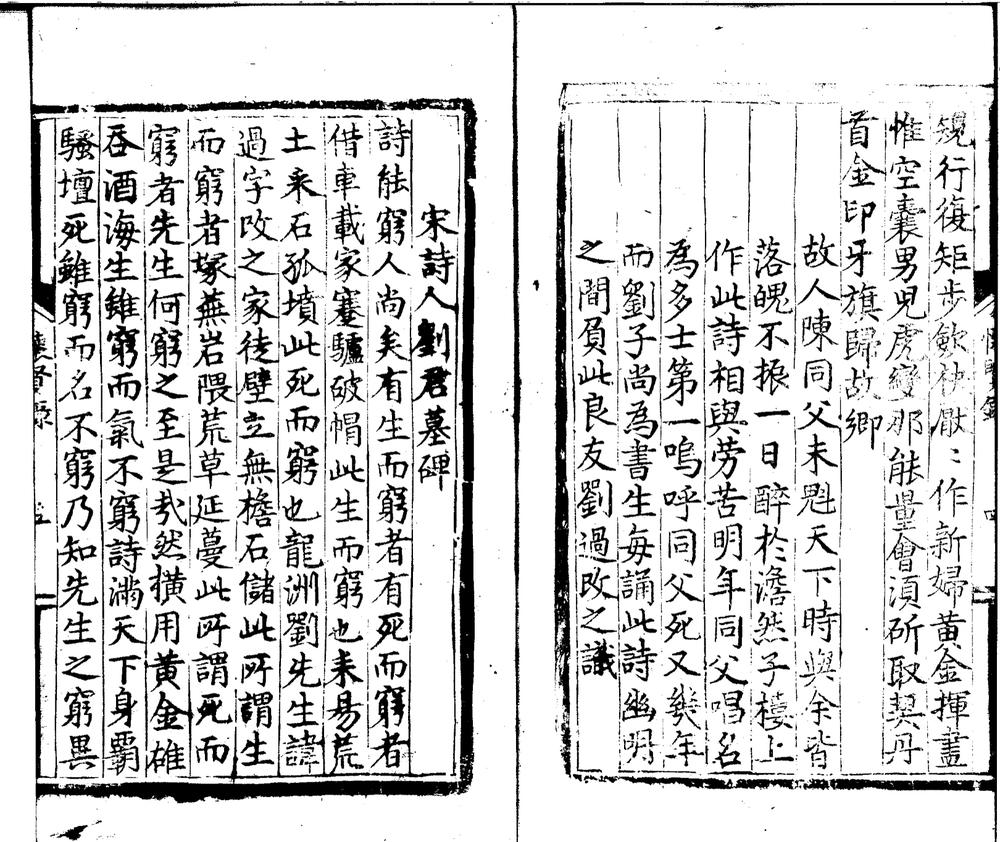 規行復矩步歛袂厭〻作新婦黄金揮盡
惟空囊男兒虎變那能量會須斫取契丹
首金印牙旗歸故鄉
故人陳同父未魁天下時與余皆
落魄不振一日醉於澹然子樓上
作此詩相與勞苦明年同父唱名
為多士第一嗚呼同父死又幾年
而劉子尚為書生每誦此詩幽明
之間負此良友劉過改之識
懷賢錄
四
宋詩人劉君墓碑
詩能窮人尚矣有生而窮者有死而窮者
借車載家蹇驢破帽此生而窮也耒易荒
土采石孤墳此死而窮也龍洲劉先生諱
過字改之家徒壁立無檐石儲此所謂生
而窮者塚蕪岩隈荒草延蔓此所謂死而
窮者先生何窮之至是㢤然横用黄金雄
吞酒海生雖窮而氣不窮詩滿天下身霸
騷壇死雖窮而名不窮乃知先生之窮異
懷賢录
五